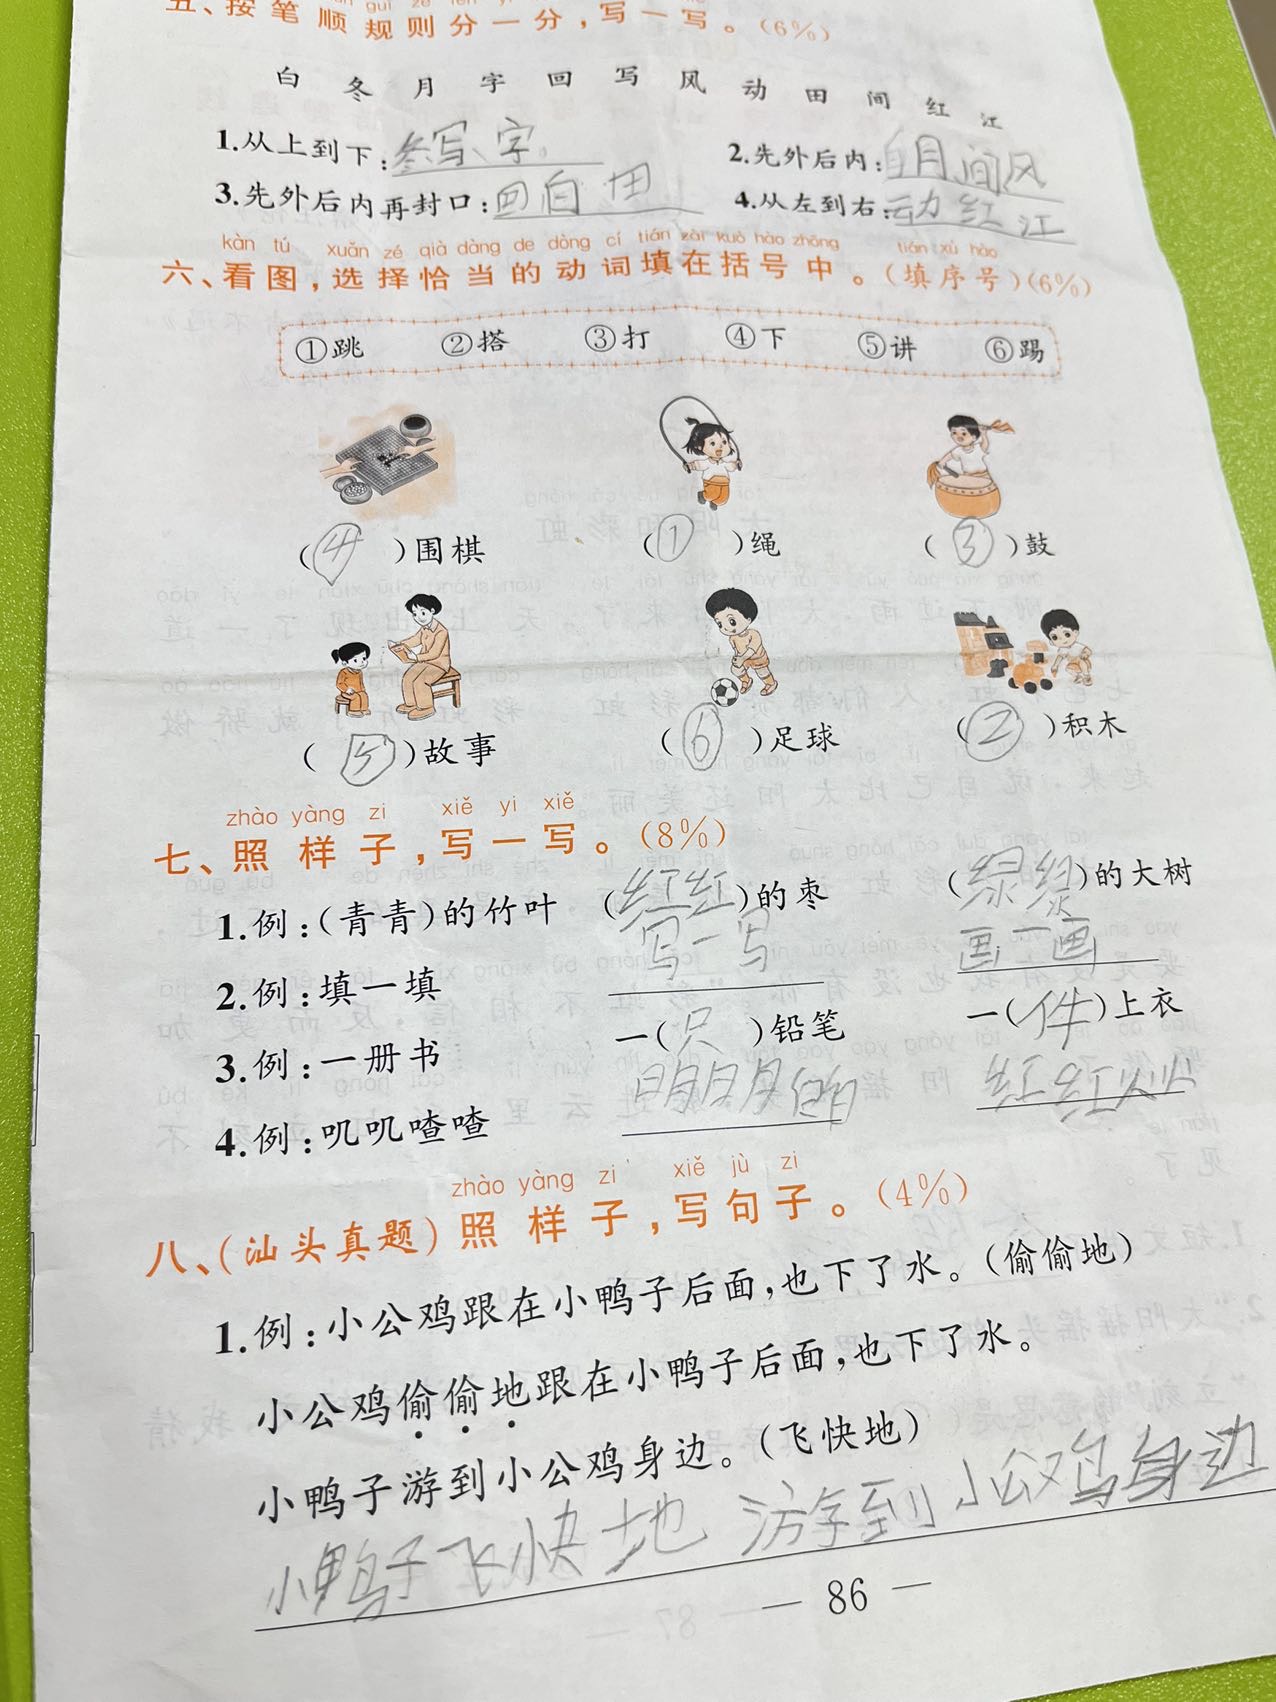 五、按笔顺规则分一分,写一写。(6%)
白 冬 月 字 回 写 风 动 田 间 红 江
1.从上到下:冬写、字 2.先外后内:月间风
3.先外后内再封口:回白田 4.从左到右:动红江
kàn tú xuǎn zé qià dàng de dòng cí tián zài kuò hào zhōng tián xù hào
六、看图,选择恰当的动词填在括号中。(填序号)(6%)
①跳 ②搭 ③打 ④下 ⑤讲 ⑥踢
(④)围棋 (①)绳 (③)鼓
(⑤)故事 (⑥)足球 (②)积木
zhào yàng zi xiě yi xiě
七、照样子,写一写。(8%)
1.例:(青青)的竹叶 (红红)的枣 (绿绿)的大树
2.例:填一填 写一写 画一画
3.例:一册书 一(只)铅笔 一(件)上衣
4.例:叽叽喳喳 红红火火
zhào yàng zi xiě jù zi
八、(汕头真题)照样子,写句子。(4%)
1.例:小公鸡跟在小鸭子后面,也下了水。(偷偷地)
小公鸡偷偷地跟在小鸭子后面,也下了水。
小鸭子游到小公鸡身边。(飞快地)
小鸭子飞快地游到小公鸡身边
— 86 —